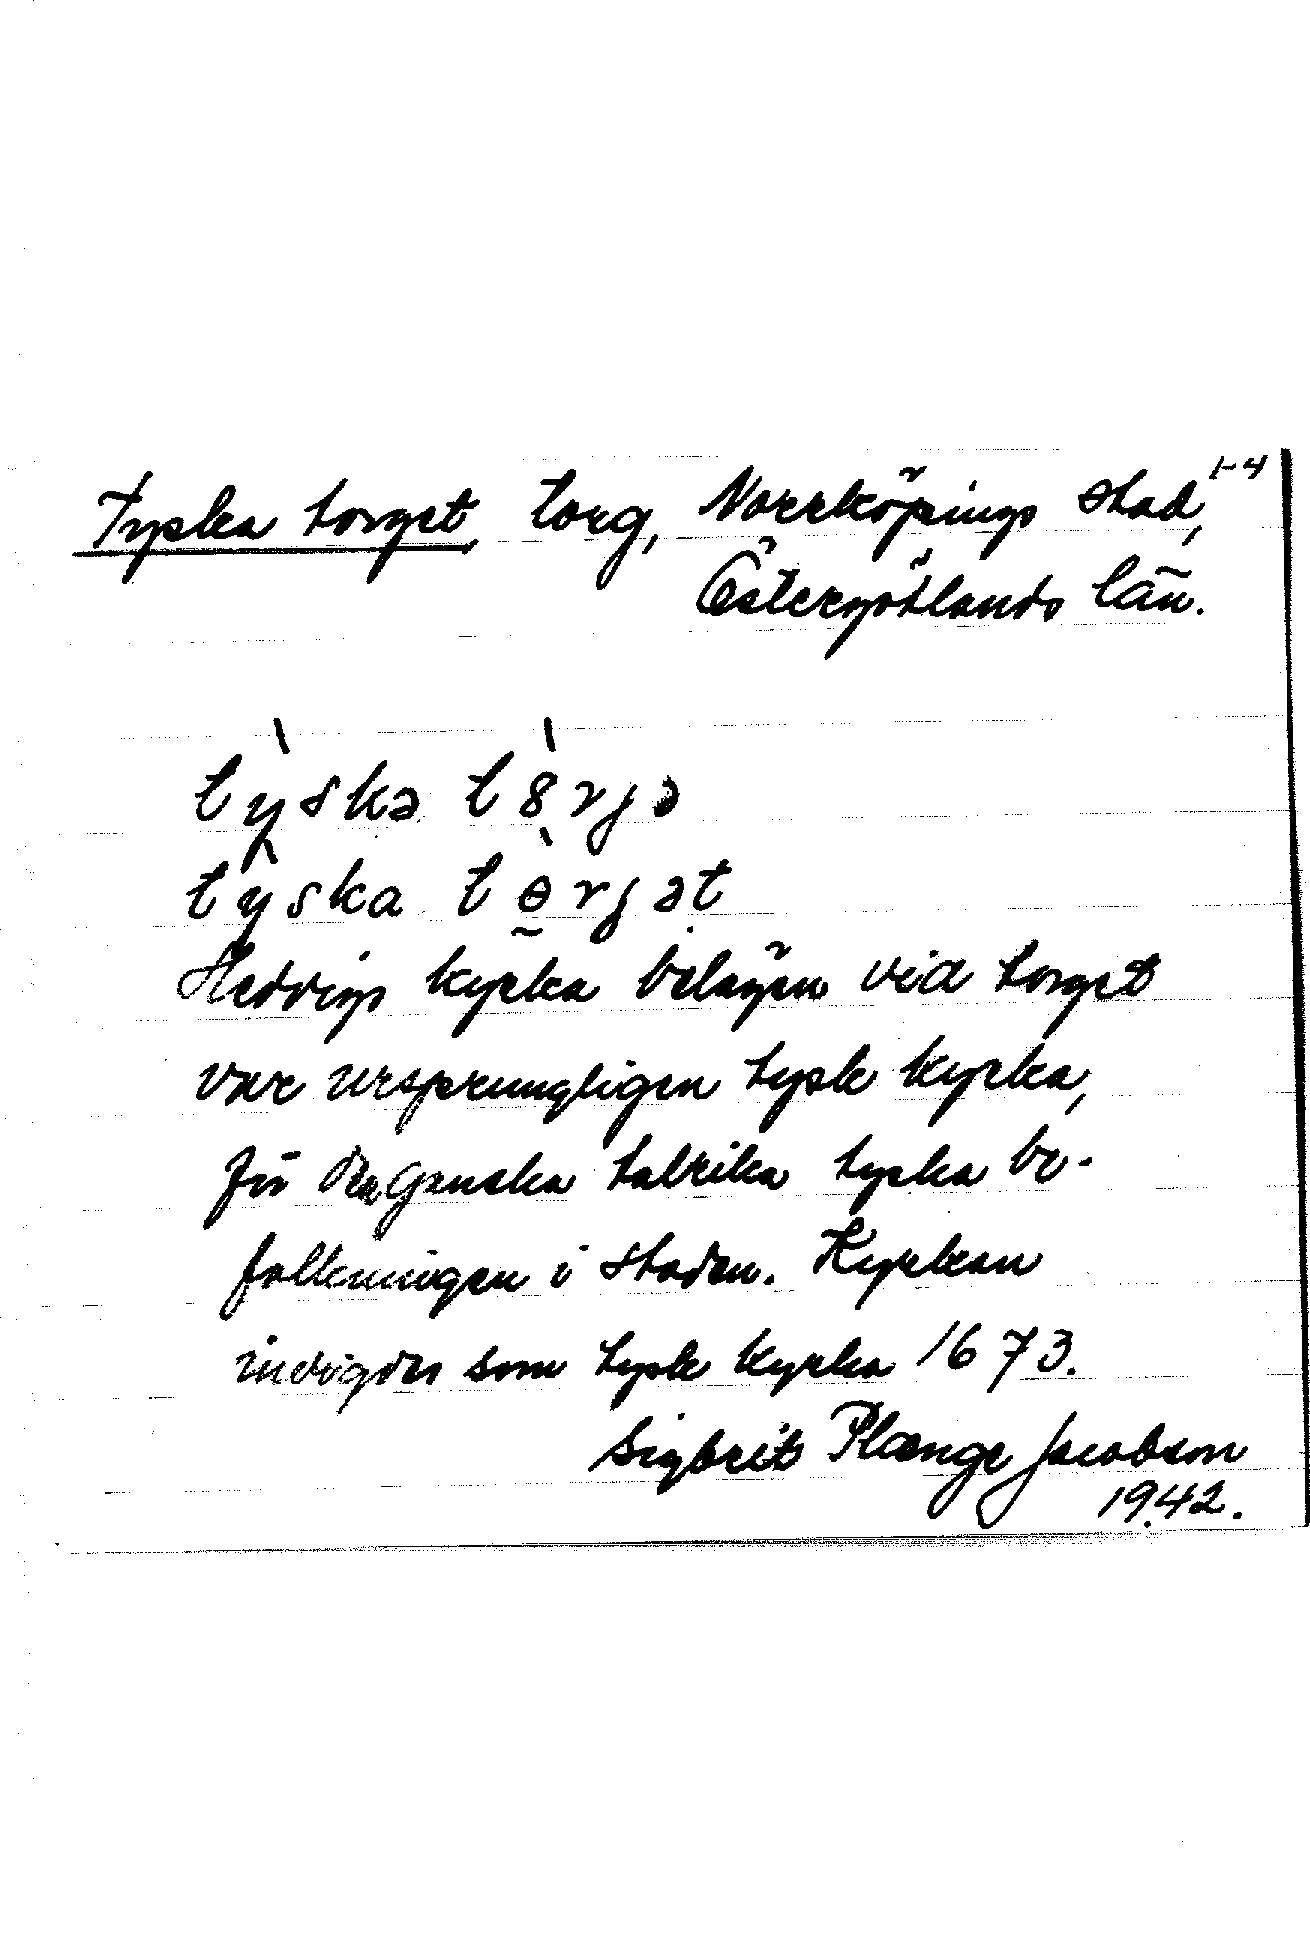 Tyska torget, torg, Norrköpings stad, 1-4
Östergötlands län.
tỳskə t8̀rjə
tỳska tɵ̀rjət
Hedvigs kyrka belägen vid torget
var ursprungligen tysk kyrka,
för den ganska talrika tyska be-
folkningen i staden. Kyrkan
invigdes som tysk kyrka 1673.
Sigbrit Plænge Jacobson
1942.